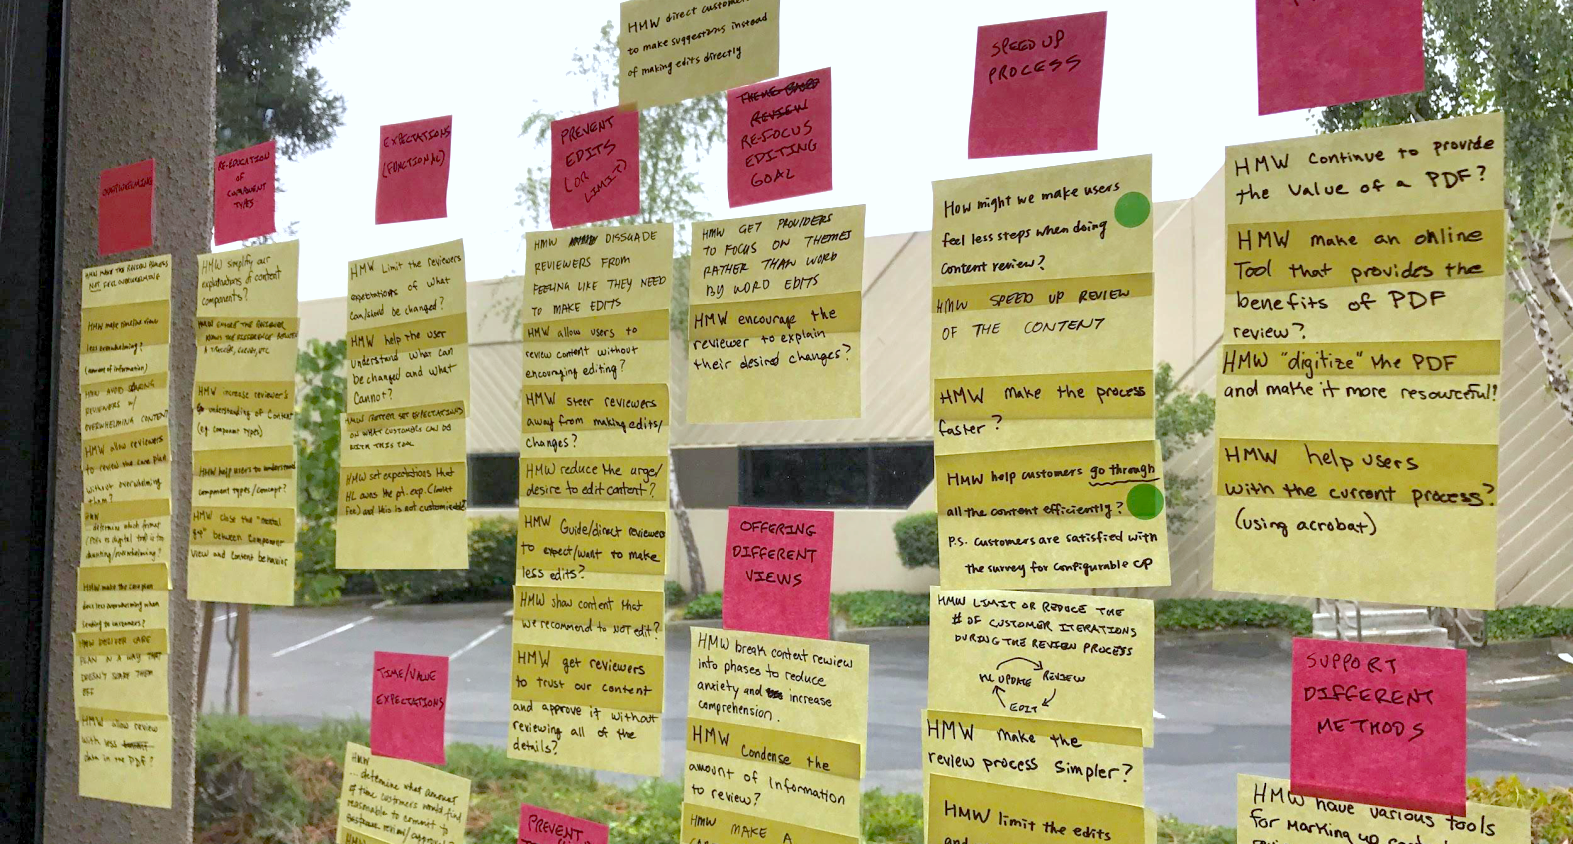 OVERWHELMING
HMW MAKE THE REVIEW PROCESS
NOT FEEL OVERWHELMING
HMW make timeline view
less overwhelming?
(amount of information)
HMW AVOID SCARING
REVIEWERS W/
OVERWHELMING CONTENT
HMW allow reviewers
to review the care plan
without overwhelming
them?
HMW
determine which format
(PDF to digital tool) is too
daunting/overwhelming?
HMW make the care plan
less overwhelming when
sending to customers?
HMW DELIVER CARE
PLAN IN A WAY THAT
DOESN'T SCARE THEM
OFF
HMW allow review
with less
data in the PDF?
RE-EDUCATION
OF
COMPONENT
TYPES
HMW simplify our
explanations of content
components?
HMW
HMW increase reviewer's
understanding of Content
(eg component types)
HMW help users to understand
component types/concept?
HMW close the "mental
gap" between Component
view and Content behavior
EXPECTATIONS
(FUNCTIONAL)
HMW Limit the reviewers
expectations of what
can/should be changed?
HMW help the user
understand what can
be changed and what
Cannot?
HMW BETTER SET EXPECTATIONS
ON WHAT CUSTOMERS CAN DO
WITH THIS TOOL
HMW set expectations that
HL owns the pt. exp.
and this is not customizable?
TIME/VALUE
EXPECTATIONS
HMW
... determine what amount
of time customers would find
reasonable to commit to
HMW
HMW direct customers
to make suggestions instead
of making edits directly
PREVENT
EDITS
(OR
LIMIT)
HMW DISSUADE
REVIEWERS FROM
FEELING LIKE THEY NEED
TO MAKE EDITS
HMW allow users to
review content without
encouraging editing?
HMW steer reviewers
away from making edits/
changes?
HMW reduce the urge/
desire to edit content?
HMW Guide/direct reviewers
to expect/want to make
less edits?
HMW show content that
we recommend to NOT edit?
HMW get reviewers
to trust our content
and approve it without
reviewing all of the
details?
PREVENT
THEME BASED
REVIEW
RE-FOCUS
EDITING
GOAL
HMW GET PROVIDERS
TO FOCUS ON THEMES
RATHER THAN WORD
BY WORD EDITS
HMW encourage the
reviewer to explain
their desired changes?
OFFERING
DIFFERENT
VIEWS
HMW break content review
into phases to reduce
anxiety and increase
comprehension.
HMW Condense the
amount of Information
to review?
HMW MAKE A
SPEED UP
PROCESS
How might we make users
feel less steps when doing
content review?
HMW SPEED UP REVIEW
OF THE CONTENT
HMW make the process
faster?
HMW help customers go through
all the content efficiently?
P.S. customers are satisfied with
the survey for configurable CP
HMW LIMIT OR REDUCE THE
# OF CUSTOMER ITERATIONS
DURING THE REVIEW PROCESS
HL UPDATE REVIEW
EDIT
HMW make the
review process Simpler?
HMW limit the edits
and
HMW Continue to provide
the value of a PDF?
HMW make an online
Tool that provides the
benefits of PDF
review?
HMW "digitize" the PDF
and make it more resourceful?
HMW help users
with the current process?
(using acrobat)
SUPPORT
DIFFERENT
METHODS
HMW have various tools
for marking up